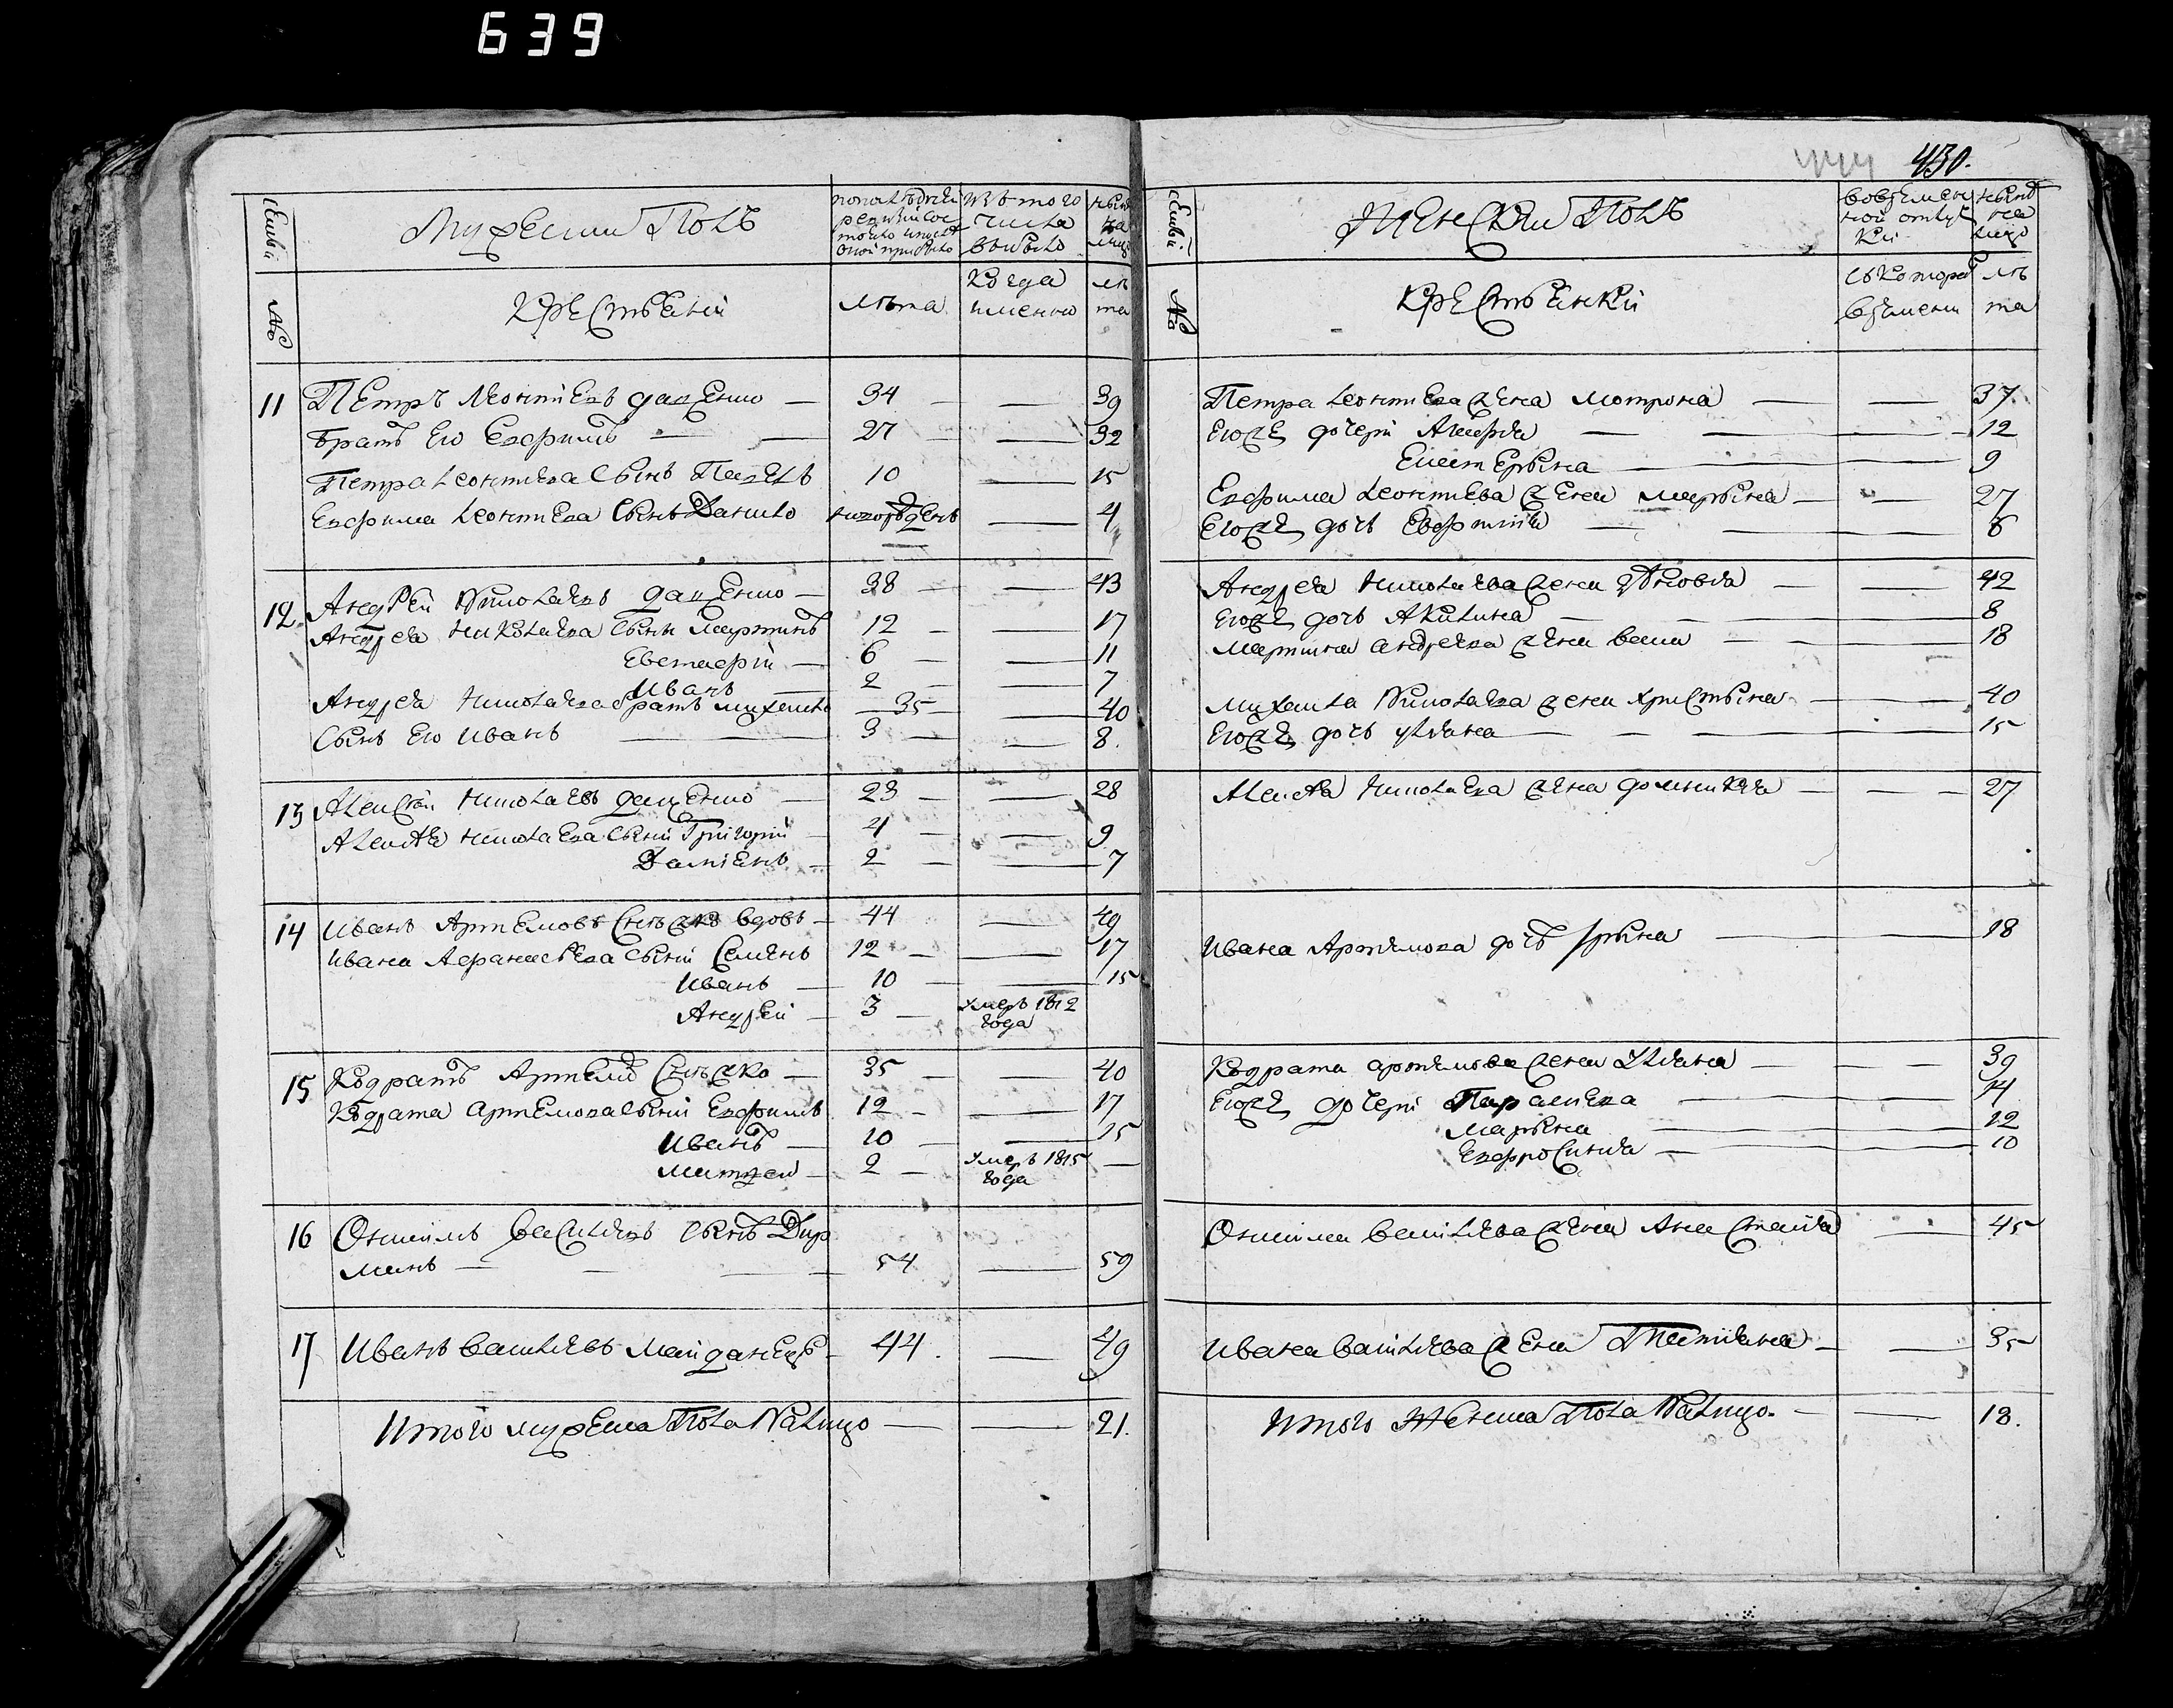 639
444 430.
Семьи
Мужескии Полъ
по последней ревизии состояло и после оной прибыло
изъ того числа выбыло
ныне на лицо
№
Крестьяни
Лѣта
Когда именно
лѣта
11 Петръ Леонтиевъ даценко — 34 — — 39
братъ Его Евфимъ — — 27 — 32
Петра Леонтиева Сынъ Павелъ 10 — 15
Евфима Леонтиева Сынъ Данило новорожденъ — 4
12. Андрей Николаевъ даценко — 38 — — 43
Андрея Николаева Сыны Мартинъ 12 — — 17
Евстаფий — 6 — — 11
Иванъ — 2 — — 7
Андрея Николаева братъ Михайло — 35 — — 40
Сынъ Его Иванъ — — 3 — — 8.
13 Алексѣй Николаевъ даценко — 23 — — 28
Алексѣя Николаева Сыни Григорий — 4 — — 9
Дамиенъ — 2 — — 7
14 Иванъ Артемовъ вдовъ — 44 — 49
Ивана Афанасьева Сыни Семенъ 12 — — 17
Иванъ — 10 — — 15
Андрей — 3 — умеръ 1812
года
15 Кодратъ Артемовъ — 35 — — 40
Кодрата Артемова Сыни Евфимъ 12 — — 17
Иванъ — 10 — — 15
Матвей — 2 — умеръ 1815 —
года
16 Васильевъ Сынъ
— — — 54 — 59
17 Иванъ Васильевъ Майданецъ — 44. — 49
Итого мужеска Пола Налицо — — 21.
Семьи
Женскии Полъ
во временной отлучки
ныне на лицо
№
Крестьянки
съ которого времени
лѣта
Петра Леонтиева жена Мотрона — — 37.
Егоже дочери — — — 12
Екатерына — — 9
Евфима Леонтиева жена Марына — — 27
Егоже дочь — — 6
Андрея Николаева жена — — 42
Егоже дочь Акилина — — — 8
Мартина Андреева жена — — 18
Михаила Николаева жена Христына — — 40
Егоже дочь Уляна — — — — 15
Алексѣя Николаева жена Домникия — — — 27
Ивана Артемова дочь Ирына — — 18
Кодрата Артемова жена Уляна — — — 39
Егоже дочери Параскева — — 14
Марына — — 12
Евфросиния — — 10
Васильева жена Анастасия — 45
Ивана Васильева жена Татияна — — 35
Итого Женска Пола Налицо. — — 18.